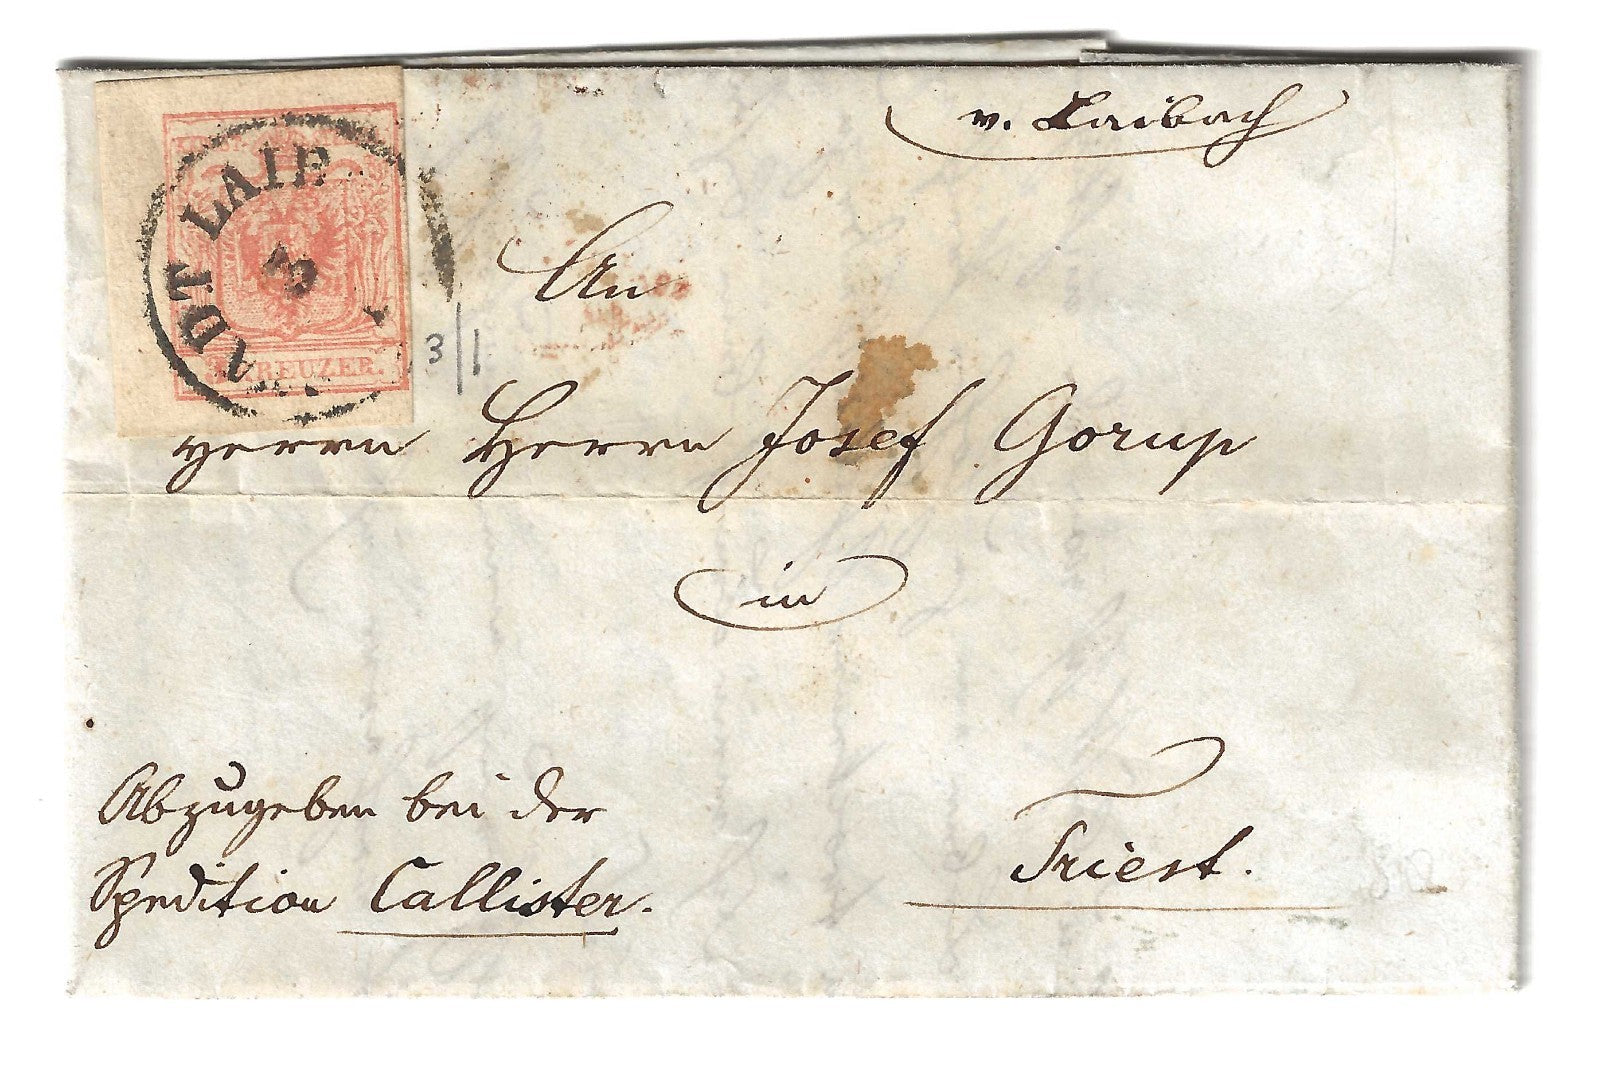 v. Laibach
ADT LAIB
3
KREUZER.
3/1
An
Herrn Herrn Josef Gorup
in
Triest.
Abzugeben bei der
Spedition Callister.